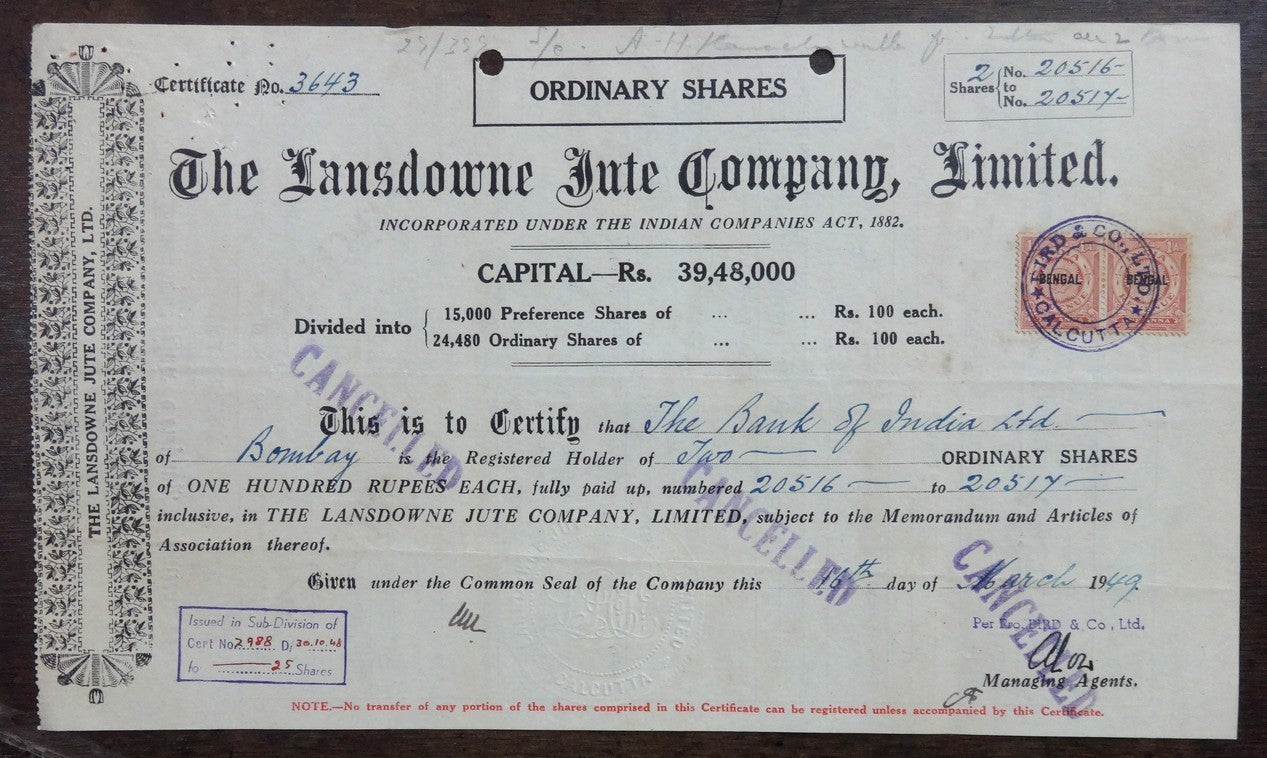 29/399
Certificate No. 3643
ORDINARY SHARES
2 Shares { No. 20516-
to
No. 20517-
The Lansdowne Jute Company, Limited.
INCORPORATED UNDER THE INDIAN COMPANIES ACT, 1882.
CAPITAL—Rs. 39,48,000
Divided into { 15,000 Preference Shares of ... ... Rs. 100 each.
24,480 Ordinary Shares of ... ... Rs. 100 each.
BENGAL BENGAL
BIRD & CO., LTD.
★ CALCUTTA ★
THE LANSDOWNE JUTE COMPANY, LTD.
This is to Certify that The Bank of India Ltd.
of Bombay is the Registered Holder of Two ORDINARY SHARES
of ONE HUNDRED RUPEES EACH, fully paid up, numbered 20516 to 20517
inclusive, in THE LANSDOWNE JUTE COMPANY, LIMITED, subject to the Memorandum and Articles of
Association thereof.
Given under the Common Seal of the Company this 16th day of March 1949.
CANCELLED
CANCELLED
CANCELLED
Issued in Sub-Division of
Cert No 2988 D/ 30.10.48
for 25 Shares
CALCUTTA
Per Pro. BIRD & Co., Ltd.
Managing Agents.
NOTE.—No transfer of any portion of the shares comprised in this Certificate can be registered unless accompanied by this Certificate.